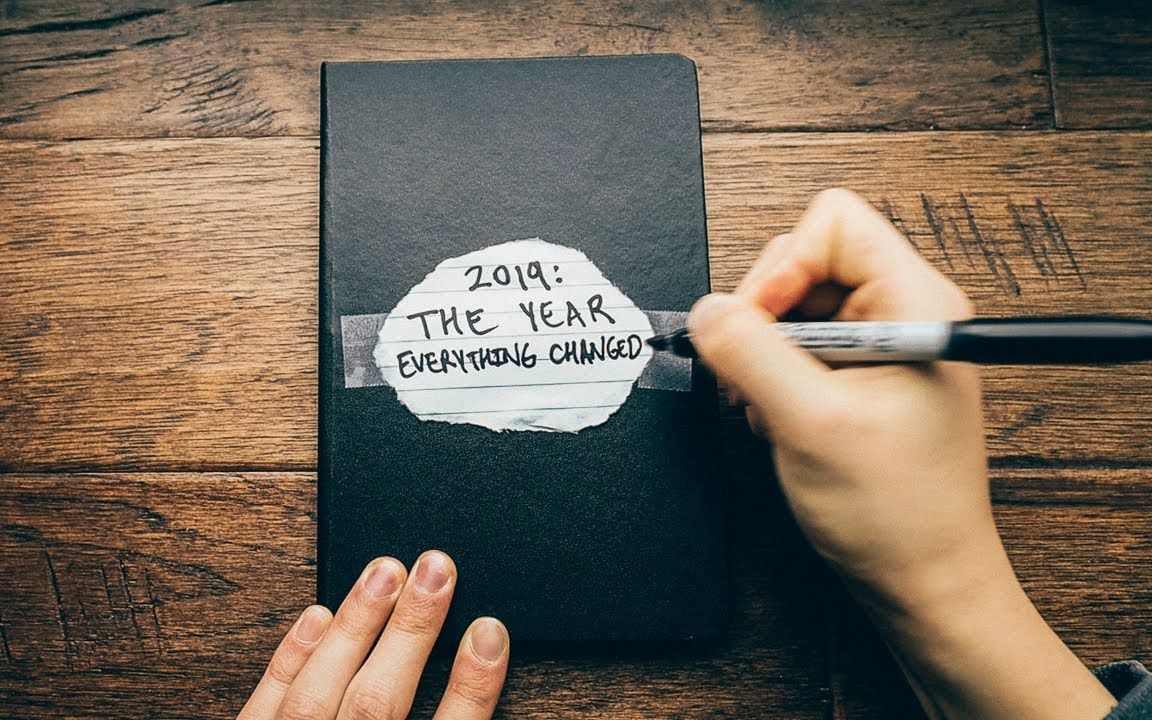 2019:
THE YEAR
EVERYTHING CHANGED